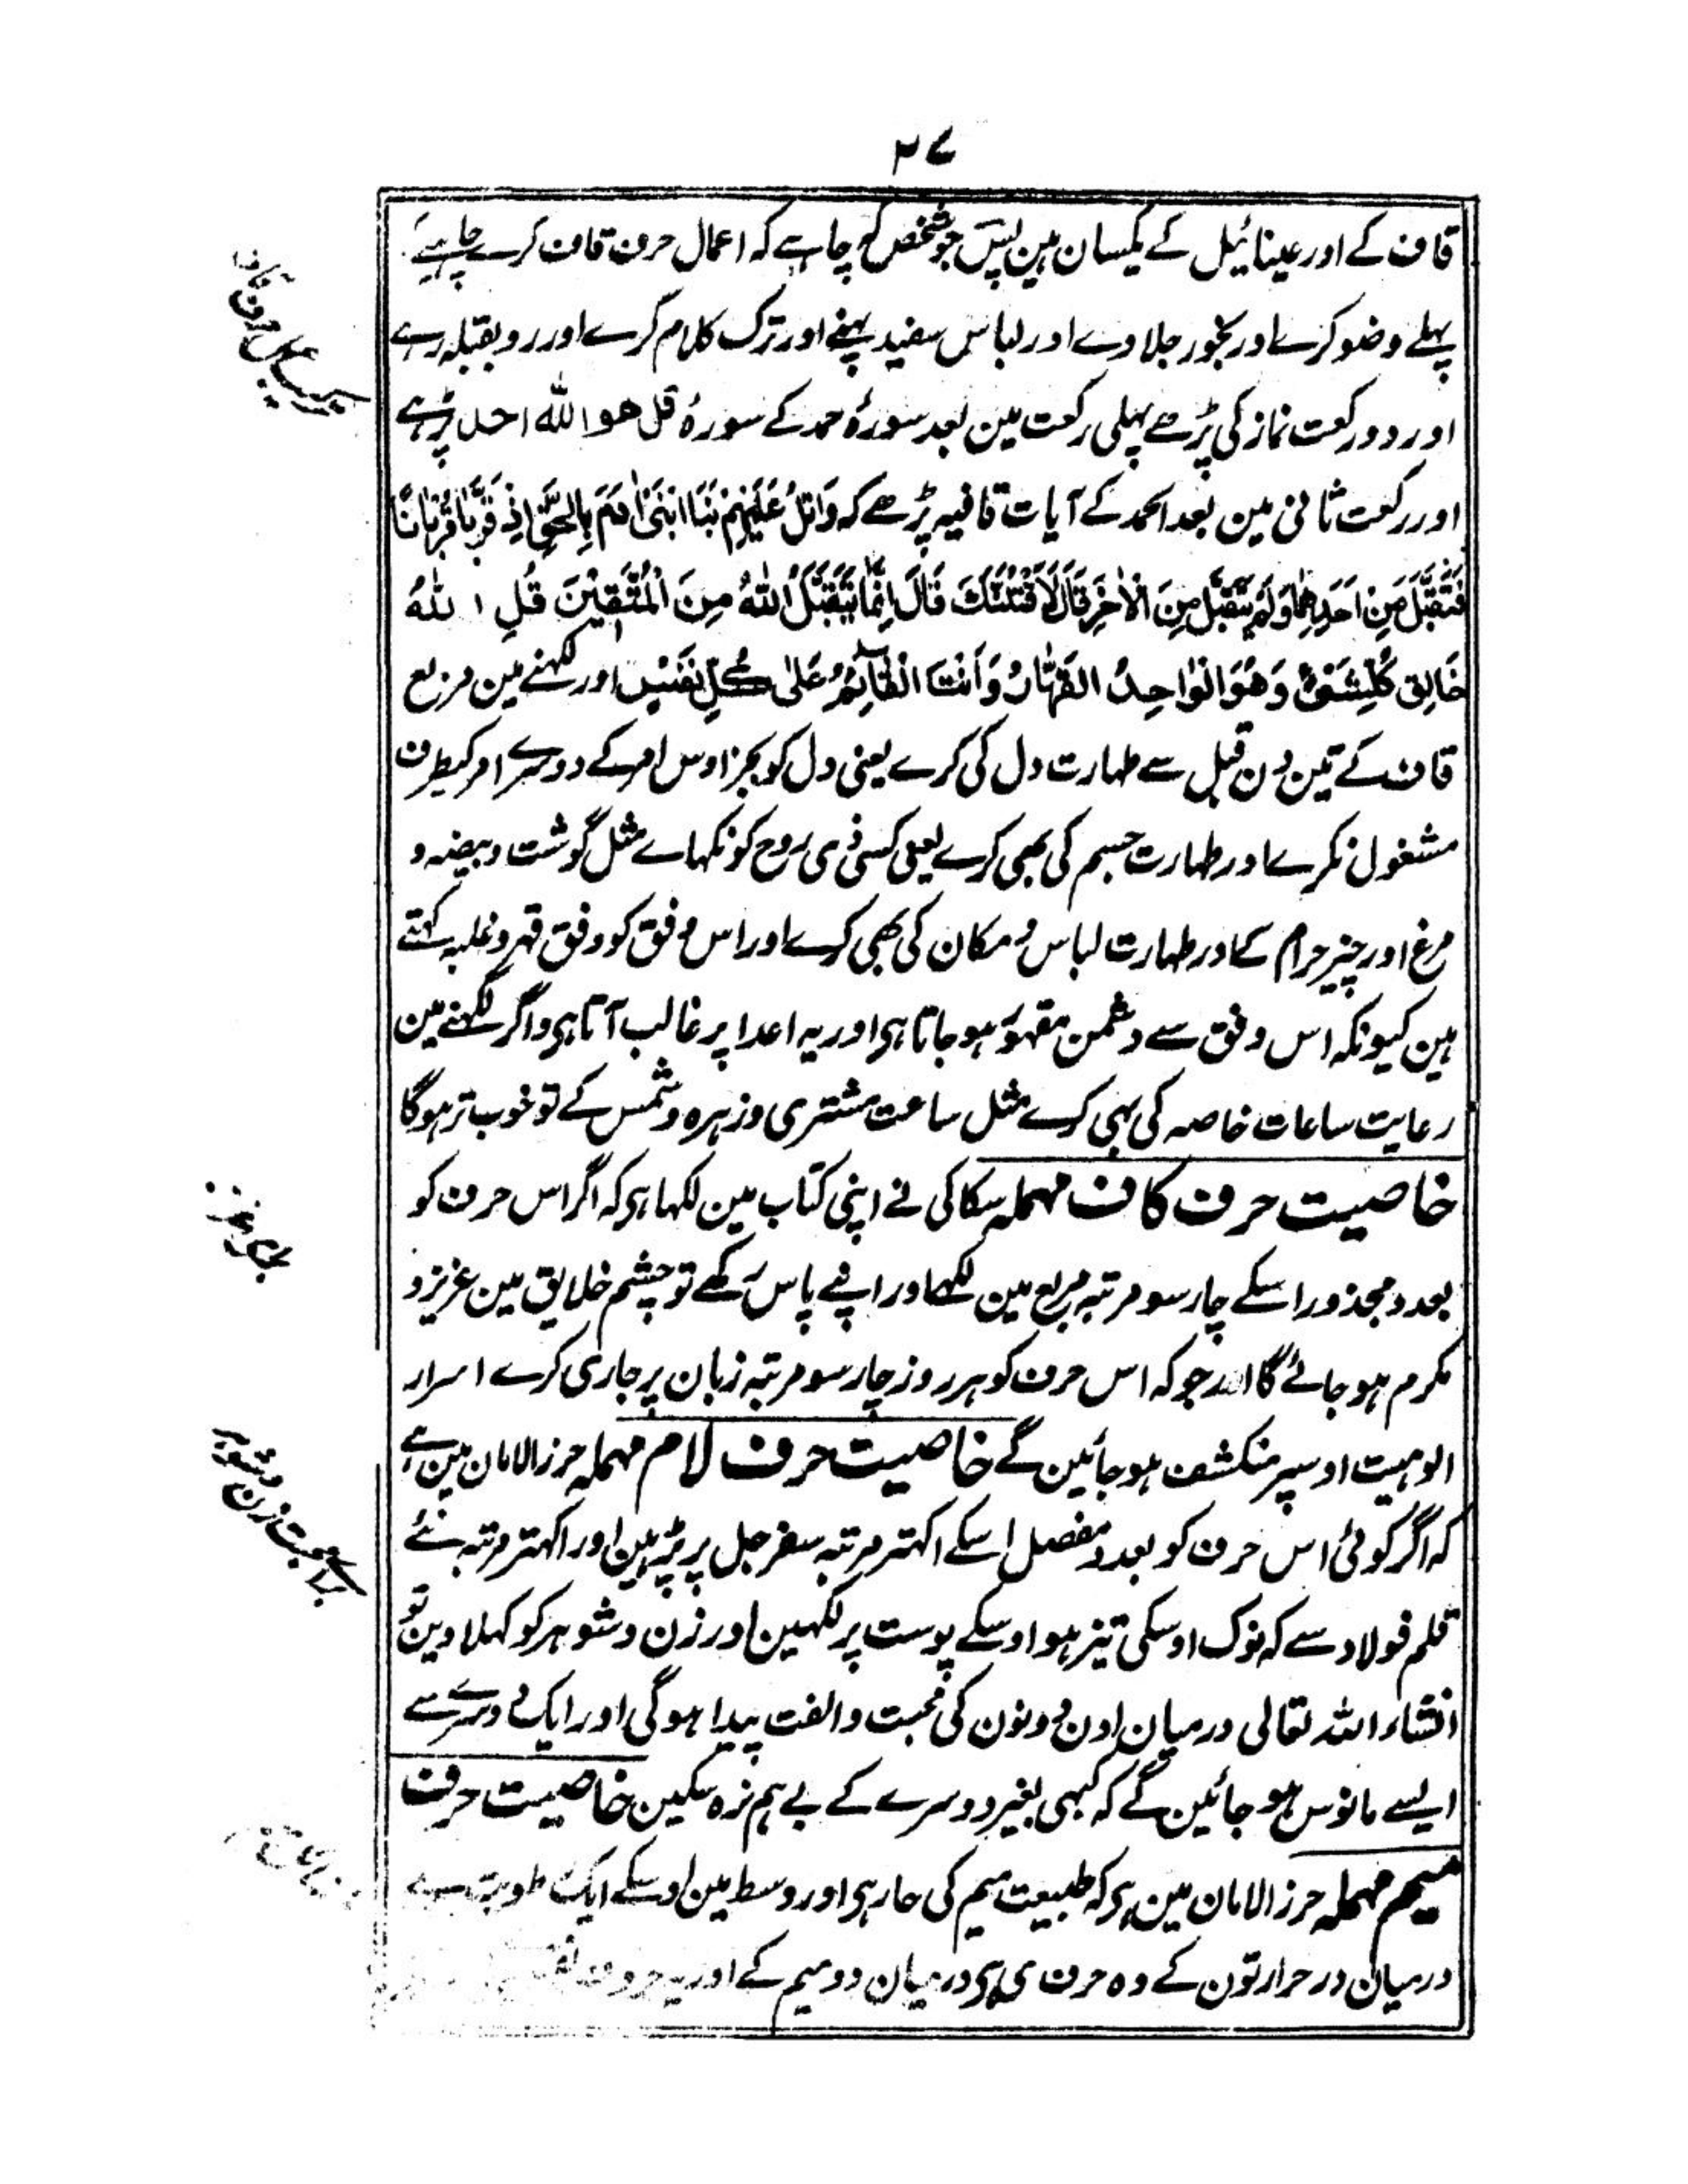 ۲۷
قاف کے اور عینائیل کے یکسان ہین پس جو شخص کہ چاہے کہ اعمال حرف قاف کرے چاہیے
پہلے وضو کرے اور بخور جلاوے اور لباس سفید پہنے اور ترک کلام کرے اور رو بقبلہ رہے
اور دو رکعت نماز کی پڑھے پہلی رکعت مین بعد سورۂ حمد کے سورۂ قل ھو اللّٰہ احد پڑہے
اور رکعت ثانی مین بعد الحمد کے آیات قافیہ پڑھے کہ وَاتْلُ عَلَیْهِمْ نَبَأَ ابْنَیْ اٰدَمَ بِالْحَقِّ اِذْ قَرَّبَا قُرْبَانًا
فَتُقُبِّلَ مِنْ اَحَدِهِمَا وَلَمْ یُتَقَبَّلْ مِنَ الْاٰخَرِ قَالَ لَاَقْتُلَنَّكَ قَالَ اِنَّمَا یَتَقَبَّلُ اللّٰهُ مِنَ الْمُتَّقِیْنَ قُلِ اللّٰهُ
خَالِقُ كُلِّ شَیْءٍ وَهُوَ الْوَاحِدُ الْقَهَّارُ وَاَنْتَ الْقَآئِمُ عَلٰی كُلِّ نَفْسٍ اور لکہنے مین مربع
قاف کے تین دن قبل سے طہارت دل کی کرے یعنی دل کو بجز اوس امر کے دوسرے امر کیطرف
مشغول نکرے اور طہارت جسم کی بھی کرے یعنی کسی ذی روح کو نکہاے مثل گوشت و بیضہ و
مرغ اور چیز حرام کے اور طہارت لباس و مکان کی بھی کرے اور اس وفق کو وفق قہر و غلبہ کہتے
ہین کیونکہ اس وفق سے دشمن مقہور ہو جاتا ہی اور یہ اعدا پر غالب آتا ہی و اگر لکہنے مین
رعایت ساعات خاصہ کی بہی کرے مثل ساعت مشتری و زہرہ و شمس کے تو خوب تر ہوگا
خاصیت حرف کاف مہملہ سکاکی نے اپنی کتاب مین لکہا ہی کہ اگر اس حرف کو
بعدد مجذور اسکے چار سو مرتبہ مربع مین لکہے اور اپنے پاس رکھے تو چشم خلایق مین عزیز و
مکرم ہو جائے گا اور جو کہ اس حرف کو ہر روز چار سو مرتبہ زبان پر جاری کرے اسرار
الوہیت اوسپر منکشف ہو جائین گے خاصیت حرف لام مہملہ حرز الامان مین ہے
کہ اگر کوئی اس حرف کو بعدد مفصل اسکے اکہتر مرتبہ سفرجل پر پڑہین اور اکہتر مرتبہ نئے
قلم فولاد سے کہ نوک اوسکی تیز ہو اوسکے پوست پر لکہین اور زن و شوہر کو کہلا دین تو
انشاء اللہ تعالی درمیان اون دونون کی محبت و الفت پیدا ہوگی اور ایک دوسرے سے
ایسے مانوس ہو جائین گے کہ کبہی بغیر دوسرے کے بے ہم نرہ سکین خاصیت حرف
میم مہملہ حرز الامان مین ہی کہ طبیعت میم کی حار ہی اور وسط مین اوسکے ایک رطوبت ہے
درمیان در حرارتون کے وہ حرف ی ہی درمیان دو میم کے اور یہ حروف
براے محبت زن و شوہر